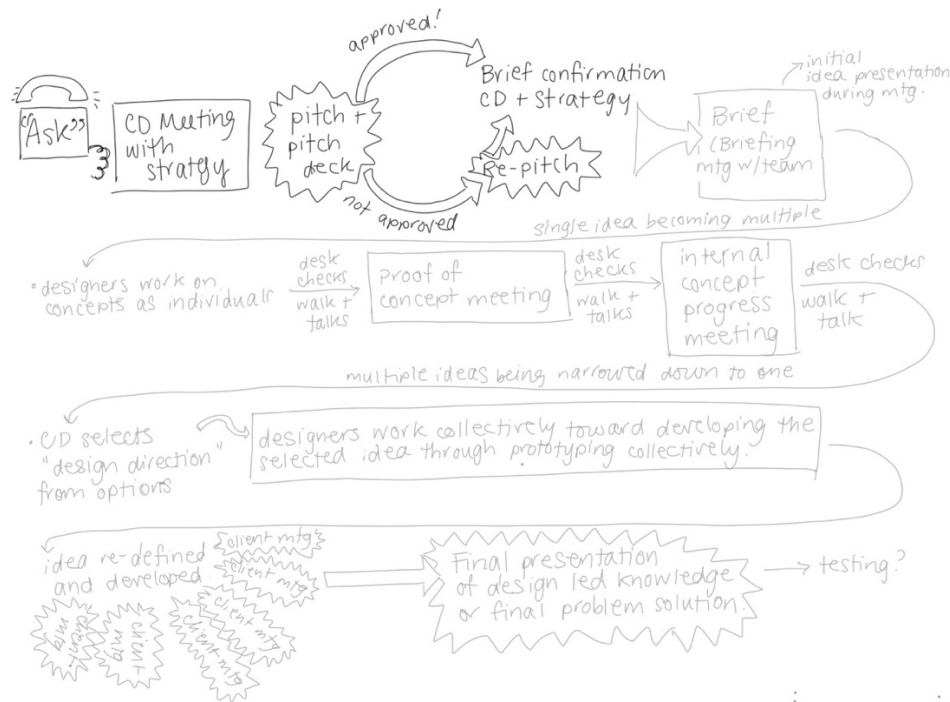 approved!
"Ask"
CD Meeting
with
stratgy
pitch +
pitch
deck
not approved
Brief confirmation
CD + strategy
Re-pitch
initial
idea presentation
during mtg.
Brief
(Briefing
mtg w/team
single idea becoming multiple
• designers work on
concepts as individuals
desk
checks
walk +
talks
proof of
concept meeting
desk
checks
walk +
talks
internal
concept
progress
meeting
desk checks
walk +
talk
multiple ideas being narrowed down to one
• CD selects
"design direction"
from options
designers work collectively toward developing the
selected idea through prototyping collectively.
idea re-defined
and developed
client mtg
client mtg
client mtg
client mtg
client
mtg
client
mtg
Final presentation
of design led knowledge
or final problem solution.
testing?